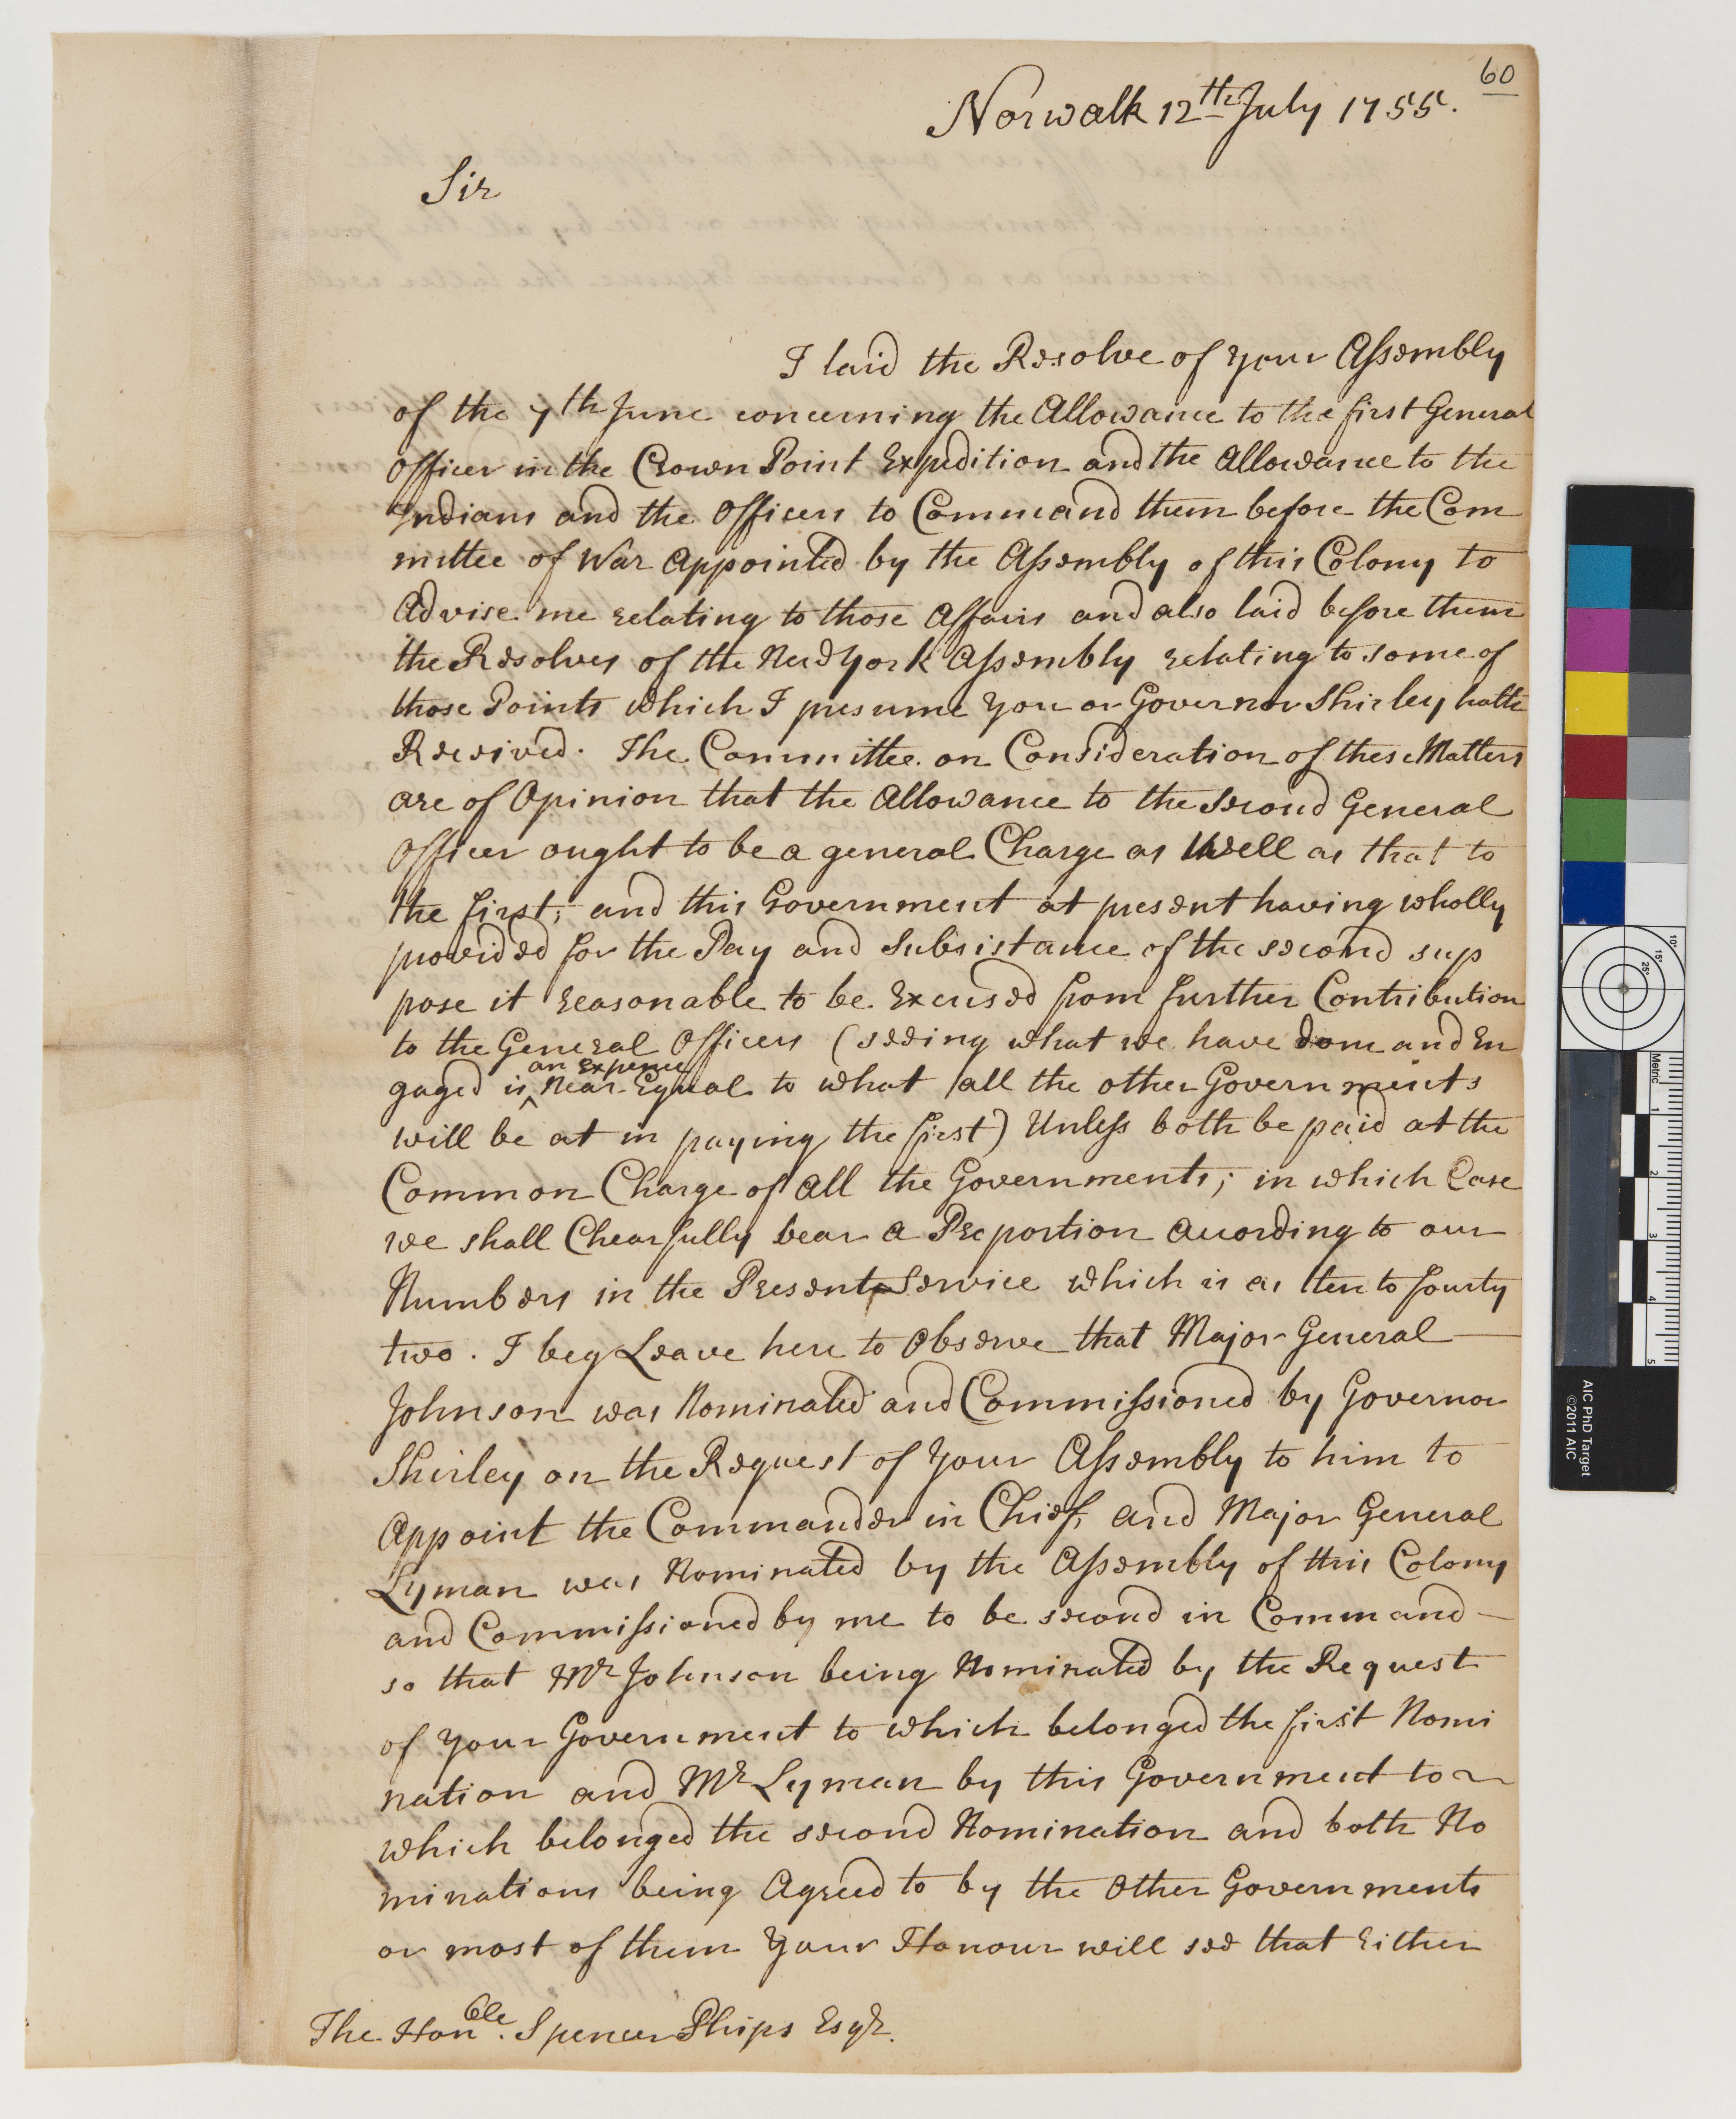 60
Norwalk 12th July 1755.
Sir
I laid the Resolve of your Assembly
of the 7th June concerning the Allowance to the first General
Officer in the Crown Point Expedition and the Allowance to the
Indians and the Officers to Command them before the Com
mittee of War Appointed by the Assembly of this Colony to
Advise me relating to those Affairs and also laid before them
the Resolves of the New York Assembly relating to some of
those Points which I presume you or Governor Shirley hath
Received. The Committee on Consideration of these Matters
are of Opinion that the Allowance to the Second General
Officer ought to be a general Charge as Well as that to
the first; and this Government at present having wholly
provided for the Pay and Subsistance of the second sup
pose it reasonable to be Excused from further Contribution
to the General Officers (seeing what we have done and En
gaged is an Expence Near Equal to what all the other Governments
will be at in paying the first) Unless both be paid at the
Common Charge of all the Governments; in which Case
we shall Chearfully bear a Proportion According to our
Numbers in the Present Service which is as ten to fourty
two. I beg Leave here to Observe that Major General
Johnson was Nominated and Commissioned by Governor
Shirley on the Request of your Assembly to him to
Appoint the Commander in Chief, and Major General
Lyman was Nominated by the Assembly of this Colony
and Commissioned by me to be second in Command
so that Mr Johnson being Nominated by the Request
of your Government to which belonged the first Nomi
nation and Mr Lyman by this Government to
which belonged the second Nomination and both No
minations being Agreed to by the Other Governments
or most of them Your Honour will see that Either
The Honble. Spencer Phips Esqr.
AIC PhD Target
©2011 AIC
Metric
1
2
3
4
5
10°
15°
25°